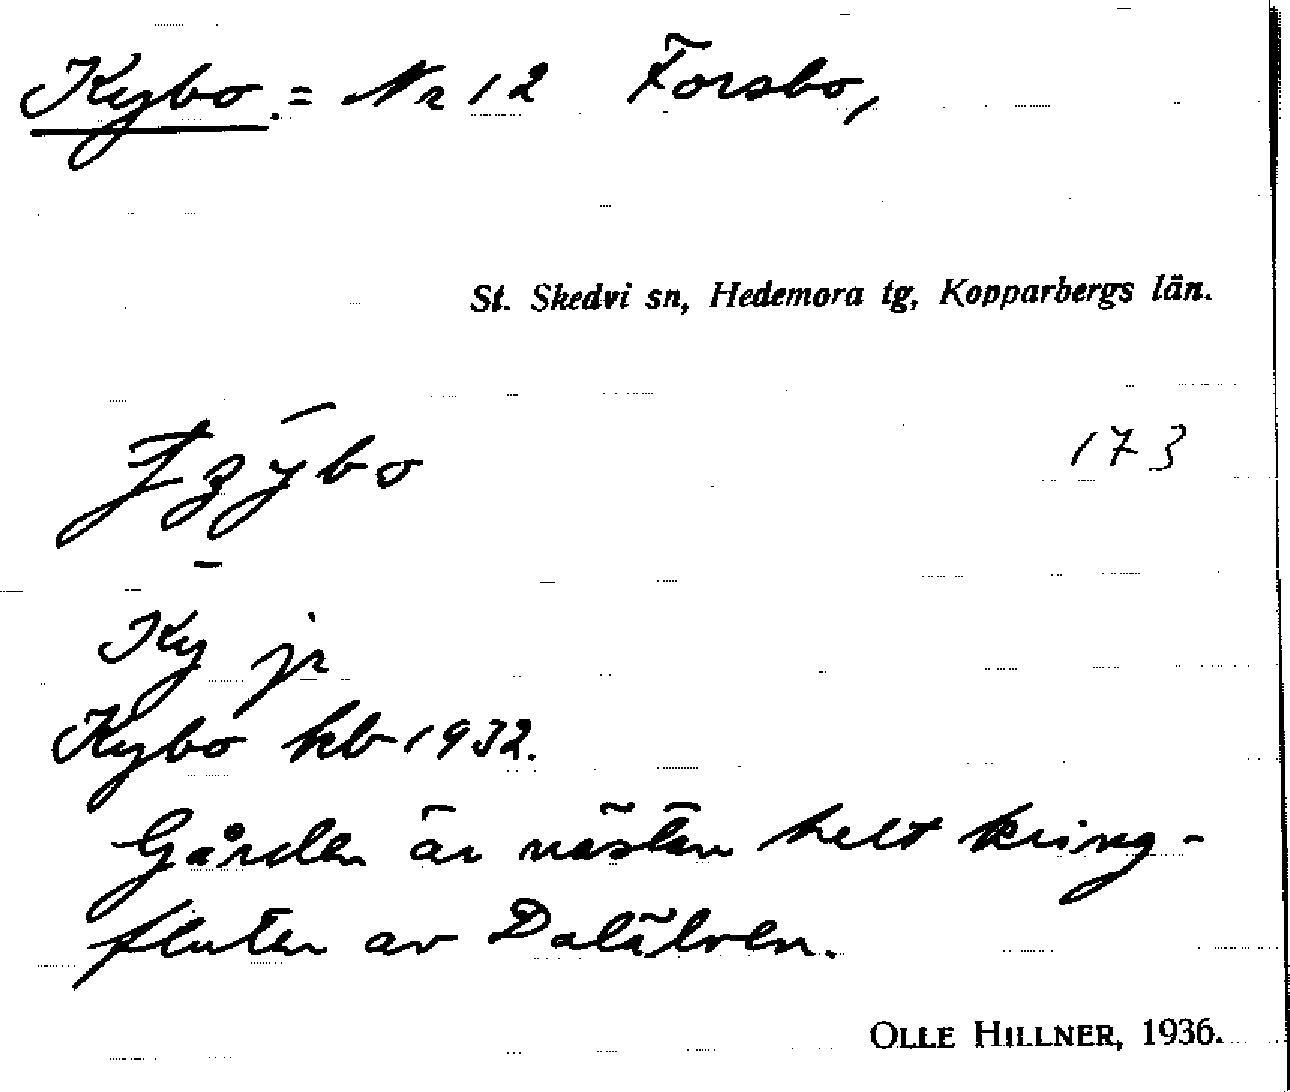 Kybo. = Nr 12 Forsbo,
St. Skedvi sn, Hedemora tg, Kopparbergs län.
173
Ky jr
Kybo kb 1932.
Gården är nästan helt kring-
fluten av Dalälven.
OLLE HILLNER, 1936.